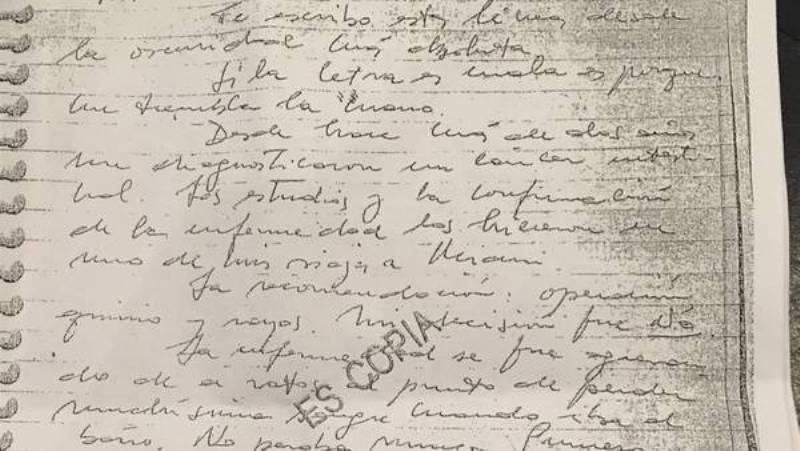 Te escribo estas líneas desde
la oscuridad más absoluta.
Si la letra es mala es porque
me tiembla la mano.
Desde hace más de dos años
me diagnosticaron un cáncer intesti-
nal. Los estudios y la confirmación
de la enfermedad los hicieron en
uno de mis viajes a Miami.
La recomendación: operación
quimio y rayos. Mi decisión fue No.
La enfermedad se fue agravan-
do de a ratos al punto de perder
muchísima sangre cuando iba al
baño. No paraba nunca. Primero
ES COPIA